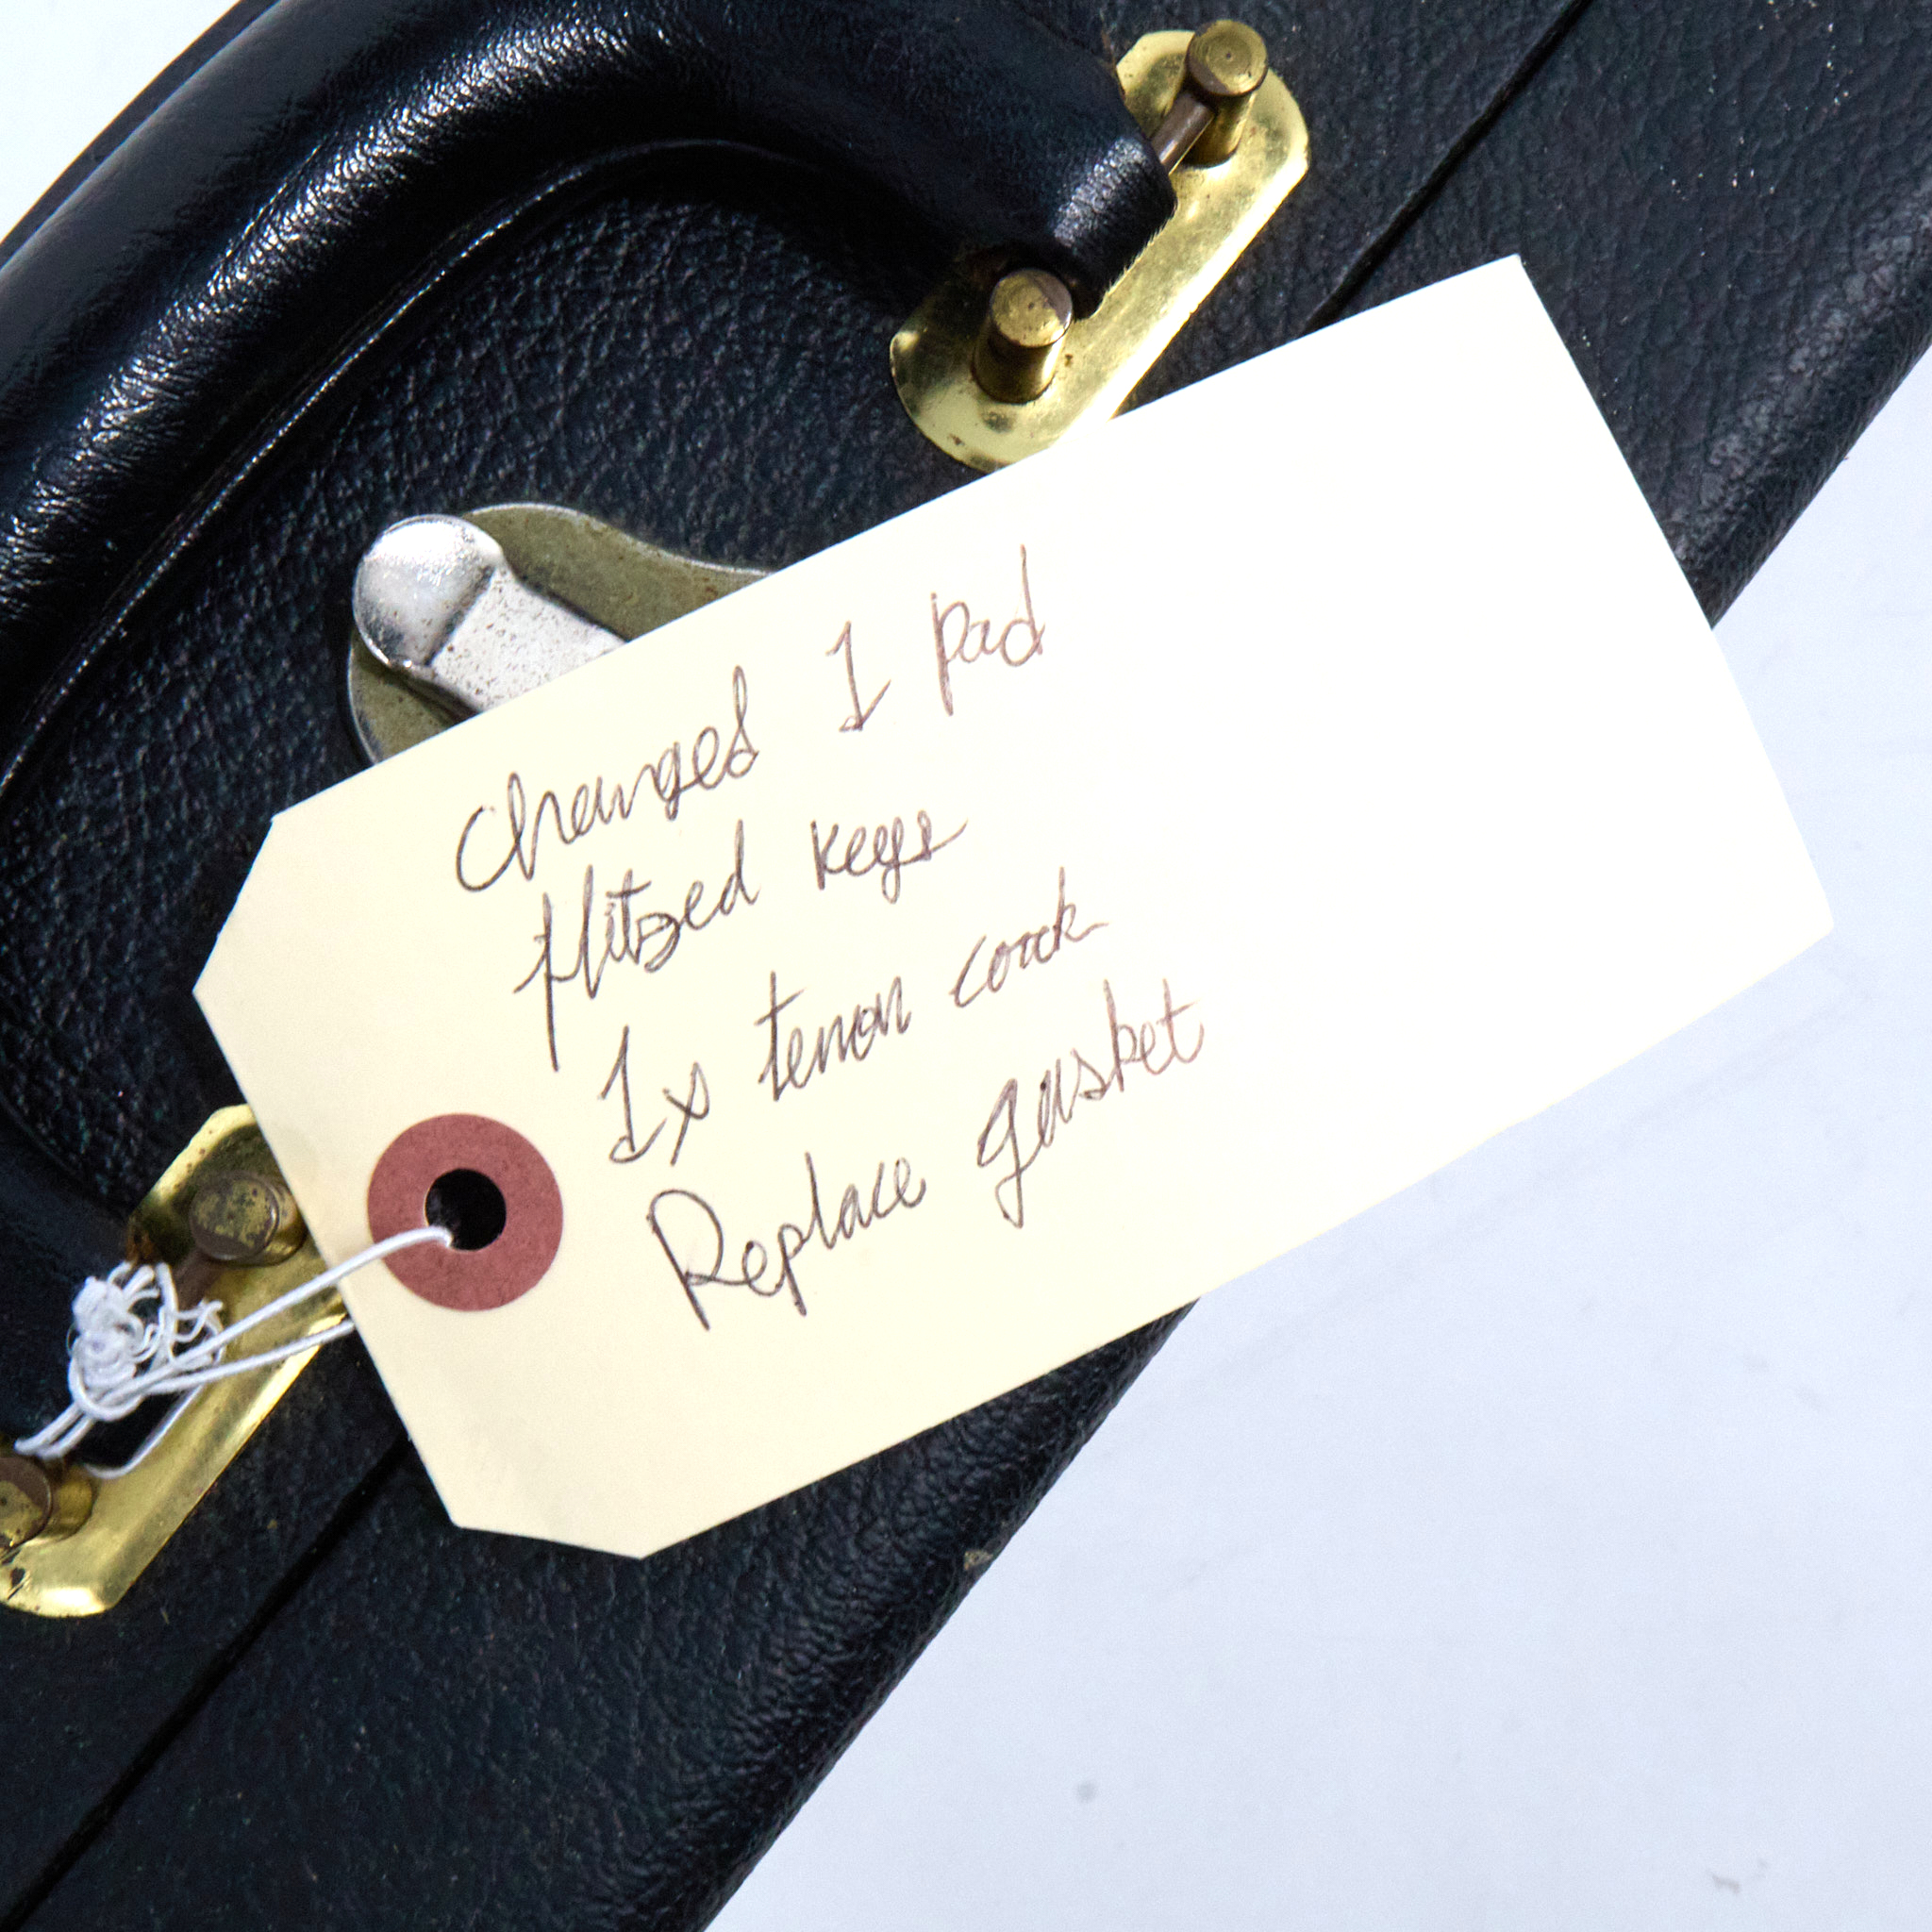 changed 1 pad
flitzed keys
1x tenon cork
Replace gasket